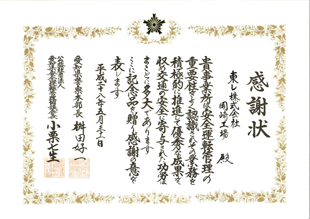 感謝状
東レ株式会社
岡崎工場 殿
貴事業所は安全運転管理の
重要性をよく認識されて業務を
積極的に推進して優秀な成果を
収め交通の安全に寄与した功労は
まことに多大であります
ここに記念品を贈り感謝の意を
表します
平成二十八年五月三十日
愛知県警察本部長 桝田好一